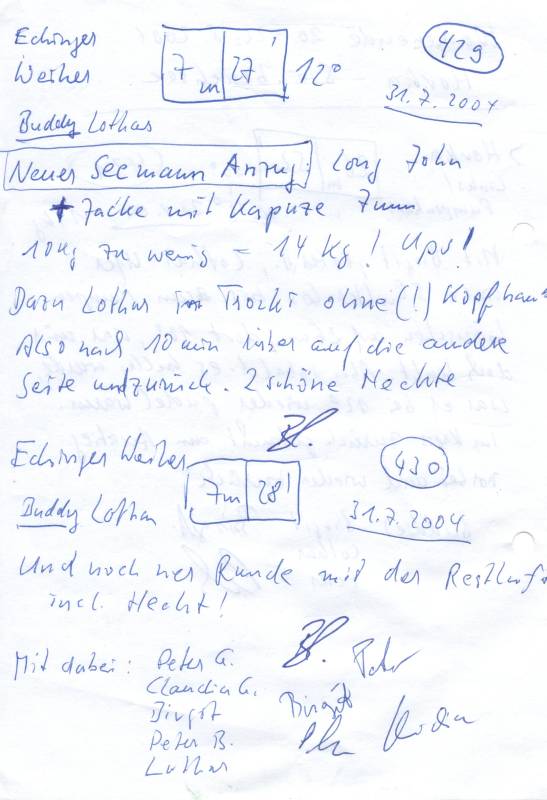 Echinger 429
Weiher 7m 27' 12°
31.7.2004
Buddy Lothar
Neuer Seemann Anzug: Long John
+ Jacke mit Kapuze 7mm
10kg zu wenig = 14 kg! Ups!
Dazu Lothar im Trocki ohne (!) Kopfhau
Also nach 10 min rüber auf die andere
Seite und zurück. 2 schöne Hechte
Echinger Weiher 430
7m 28'
Buddy Lothar 31.7.2004
Und noch ne Runde mit der Restluft
incl. Hecht!
Mit dabei: Peter G. Peter
Claudia G.
Birgit Birgit
Peter B.
Lothar